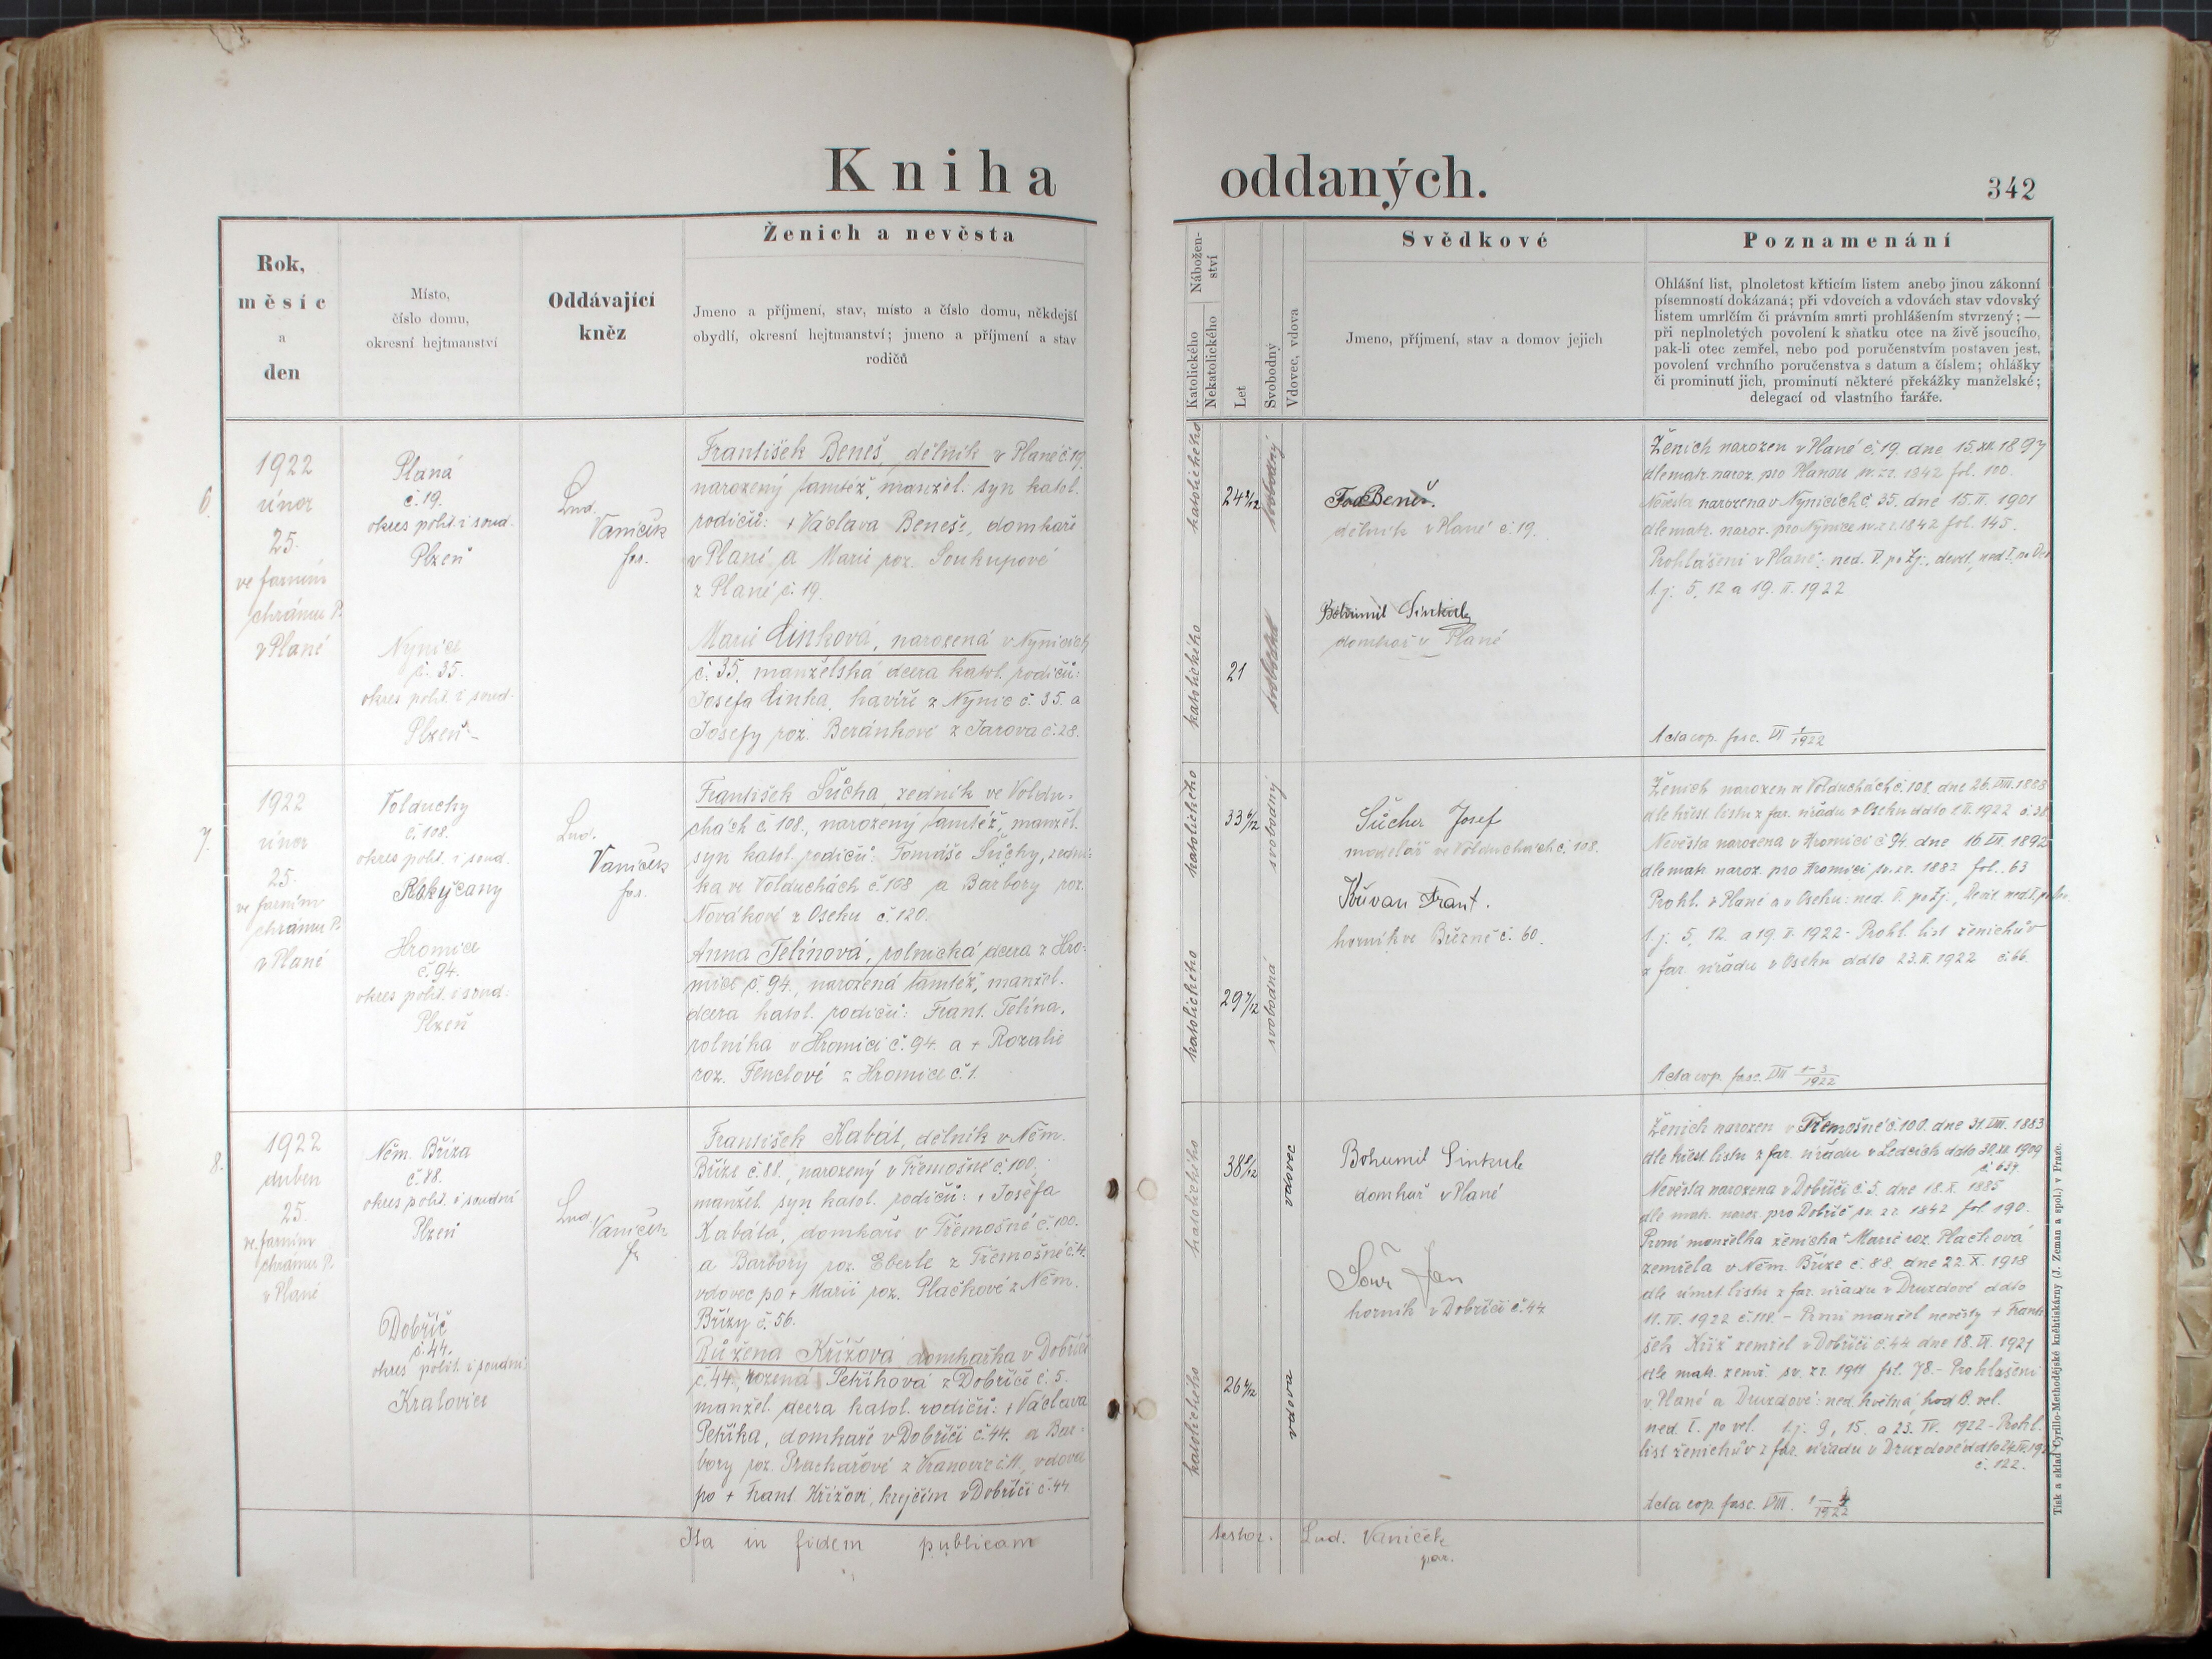 Kniha oddaných.
342
Rok,
měsíc
a
den
Místo,
číslo domu,
okresní hejtmanství
Oddávající
kněz
Ženich a nevěsta
Jmeno a příjmení, stav, místo a číslo domu, někdejší
obydlí, okresní hejtmanství; jmeno a příjmení a stav
rodičů
Nábožen-
ství
Katolického
Nekatolického
Let
Svobodný
Vdovec, vdova
Svědkové
Jmeno, příjmení, stav a domov jejich
Poznamenání
Ohlášní list, plnoletost křticím listem anebo jinou zákonní
písemností dokázaná; při vdovcích a vdovách stav vdovský
listem umrlčím či právním smrti prohlášením stvrzený; —
při neplnoletých povolení k sňatku otce na živě jsoucího,
pak-li otec zemřel, nebo pod poručenstvím postaven jest,
povolení vrchního poručenstva s datum a číslem; ohlášky
či prominutí jich, prominutí některé překážky manželské;
delegací od vlastního faráře.
6.
1922
únor
25.
ve farním
chrámu P.
v Plané
Planá
č. 19.
okres polit. i soud.
Plzeň
Nynice
č. 35.
okres polit. i soud.
Plzeň
Lud.
Vaníček
far.
František Beneš, dělník v Plané č. 19.
narozený tamtéž, manžel. syn katol.
rodičů: + Václava Beneše, domkaře
v Plané a Marie roz. Soukupové
z Plané č. 19.
Marie Linková, narozená v Nynicích
č. 35. manželská dcera katol. rodičů:
Josefa Linka, havíře z Nynic č. 35. a
Josefy roz. Beránkové z Jarova č. 28.
katolického
24 2/12
svobodný
katolického
21
svobodná
Beneš.
dělník v Plané č. 19.
Bohumil Sinkule
domkař v Plané
Ženich narozen v Plané č. 19. dne 15. XII. 1897
dle matr. naroz. pro Planou sv. zr. 1842 fol. 100.
Nevěsta narozena v Nynicích č. 35. dne 15. II. 1901
dle matr. naroz. pro Nynice sv. zr. 1842 fol. 145.
Prohlášení v Plané: ned. V. po Zj., devít., ned. I. po Dev.
t. j. 5, 12 a 19. II. 1922
Acta cop. fasc. VI 1/1922
7.
1922
únor
25.
ve farním
chrámu P.
v Plané
Volduchy
č. 108.
okres polit. i soud.
Rokycany
Hromice
č. 94.
okres polit. i soud.
Plzeň
Lud.
Vaníček
far.
František Šůcha, zedník ve Voldu-
chách č. 108., narozený tamtéž, manžel.
syn katol. rodičů: Tomáše Šůchy, zední-
ka ve Volduchách č. 108 a Barbory roz.
Novákové z Oseku č. 120.
Anna Telínová, rolnická dcera z Hro-
mice č. 94., narozená tamtéž, manžel.
dcera katol. rodičů: Frant. Telína,
rolníka v Hromici č. 94. a + Rozalie
roz. Fenclové z Hromice č. 1.
katolického
33 6/12
svobodný
katolického
29 7/12
svobodná
Šůcha Josef
modelář ve Volduchách č. 108.
Křivan Frant.
horník ve Březně č. 60.
Ženich narozen ve Volduchách č. 108. dne 26. VIII. 1888
dle křest. listu z far. úřadu v Oseku ddto 1. II. 1922 č. 38.
Nevěsta narozena v Hromici č. 94. dne 16. VII. 1892
dle matr. naroz. pro Hromici sv. zr. 1882 fol. 63
Prohl. v Plané a v Oseku: ned. V. po Zj., Devít. ned. I. po Dev.
t. j. 5, 12. a 19. II. 1922 - Prohl. list ženichův
z far. úřadu v Oseku ddto 23. II. 1922 č. 66.
Acta cop. fasc. VII 1-3/1922
8.
1922
duben
25.
ve farním
chrámu P.
v Plané
Něm. Bříza
č. 88.
okres polit. i soudní
Plzeň
Dobříč
č. 44.
okres polit. i soudní
Kralovice
Lud.
Vaníček
far.
František Kabát, dělník v Něm.
Bříze č. 88., narozený v Třemošné č. 100.
manžel. syn katol. rodičů: + Josefa
Kabáta, domkaře v Třemošné č. 100.
a Barbory roz. Eberle z Třemošné č. 4.
vdovec po + Marii roz. Plačkové z Něm.
Břízy č. 56.
Růžena Křížová domkařka v Dobříči
č. 44., rozená Petříková z Dobříče č. 5.
manžel. dcera katol. rodičů: + Václava
Petříka, domkaře v Dobříči č. 44. a Bar-
bory roz. Prachařové z Kranovic č. 11, vdova
po + Frant. Křížovi, krejčím v Dobříči č. 44
katolického
38 8/12
vdovec
katolického
vdova
Bohumil Sinkule
domkař v Plané
Jan
horník v Dobříči č. 44
Ženich narozen v Třemošné č. 100. dne 31. VIII. 1883
dle křest. listu z far. úřadu v Ledcích ddto 30. XI. 1909
č. 637.
Nevěsta narozena v Dobříči č. 5. dne 18. X. 1885
dle matr. naroz. pro Dobříč sv. zr. 1842 fol. 190.
První manželka ženicha + Marie roz. Plačková
zemřela v Něm. Bříze č. 88. dne 22. X. 1918
dle úmrt. listu z far. úřadu v Druzdové ddto
11. IV. 1922 č. 118. - První manžel nevěsty + Franti-
šek Kříž zemřel v Dobříči č. 44 dne 18. IV. 1921
dle matr. zemř. sv. zr. 1911 fol. 78. - Prohlášení
v Plané a Druzdové: ned. květná, hod B. vel.
ned. I. po vel. t. j. 9, 15. a 23. IV. 1922 - Prohl.
list ženichův z far. úřadu v Druzdové ddto
č. 122.
Acta cop. fasc. VIII. 1-4/1922
Ita in fidem publicam testor. Lud. Vaníček
par.
Tisk a sklad Cyrillo-Methodějské knihtiskárny (J. Zeman a spol.) v Praze.